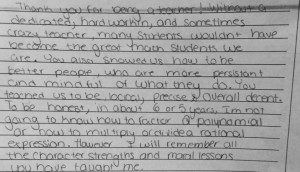 Thank you for being a teacher! Without a
dedicated, hard workin, and sometimes
crazy teacher, many students wouldnt have
become the great math students we
are. You also showed us how to be
better people, who are more persistant
and mindful of what they do. You
teached us to be honest, precise & overall decent.
To be honest, in about 3 or 5 years, I'm not
going to know how to factor a polynamial
or how to multiply or divide a rational
expression. However I will remember all
the character strengths and moral lessons
you have taught me.